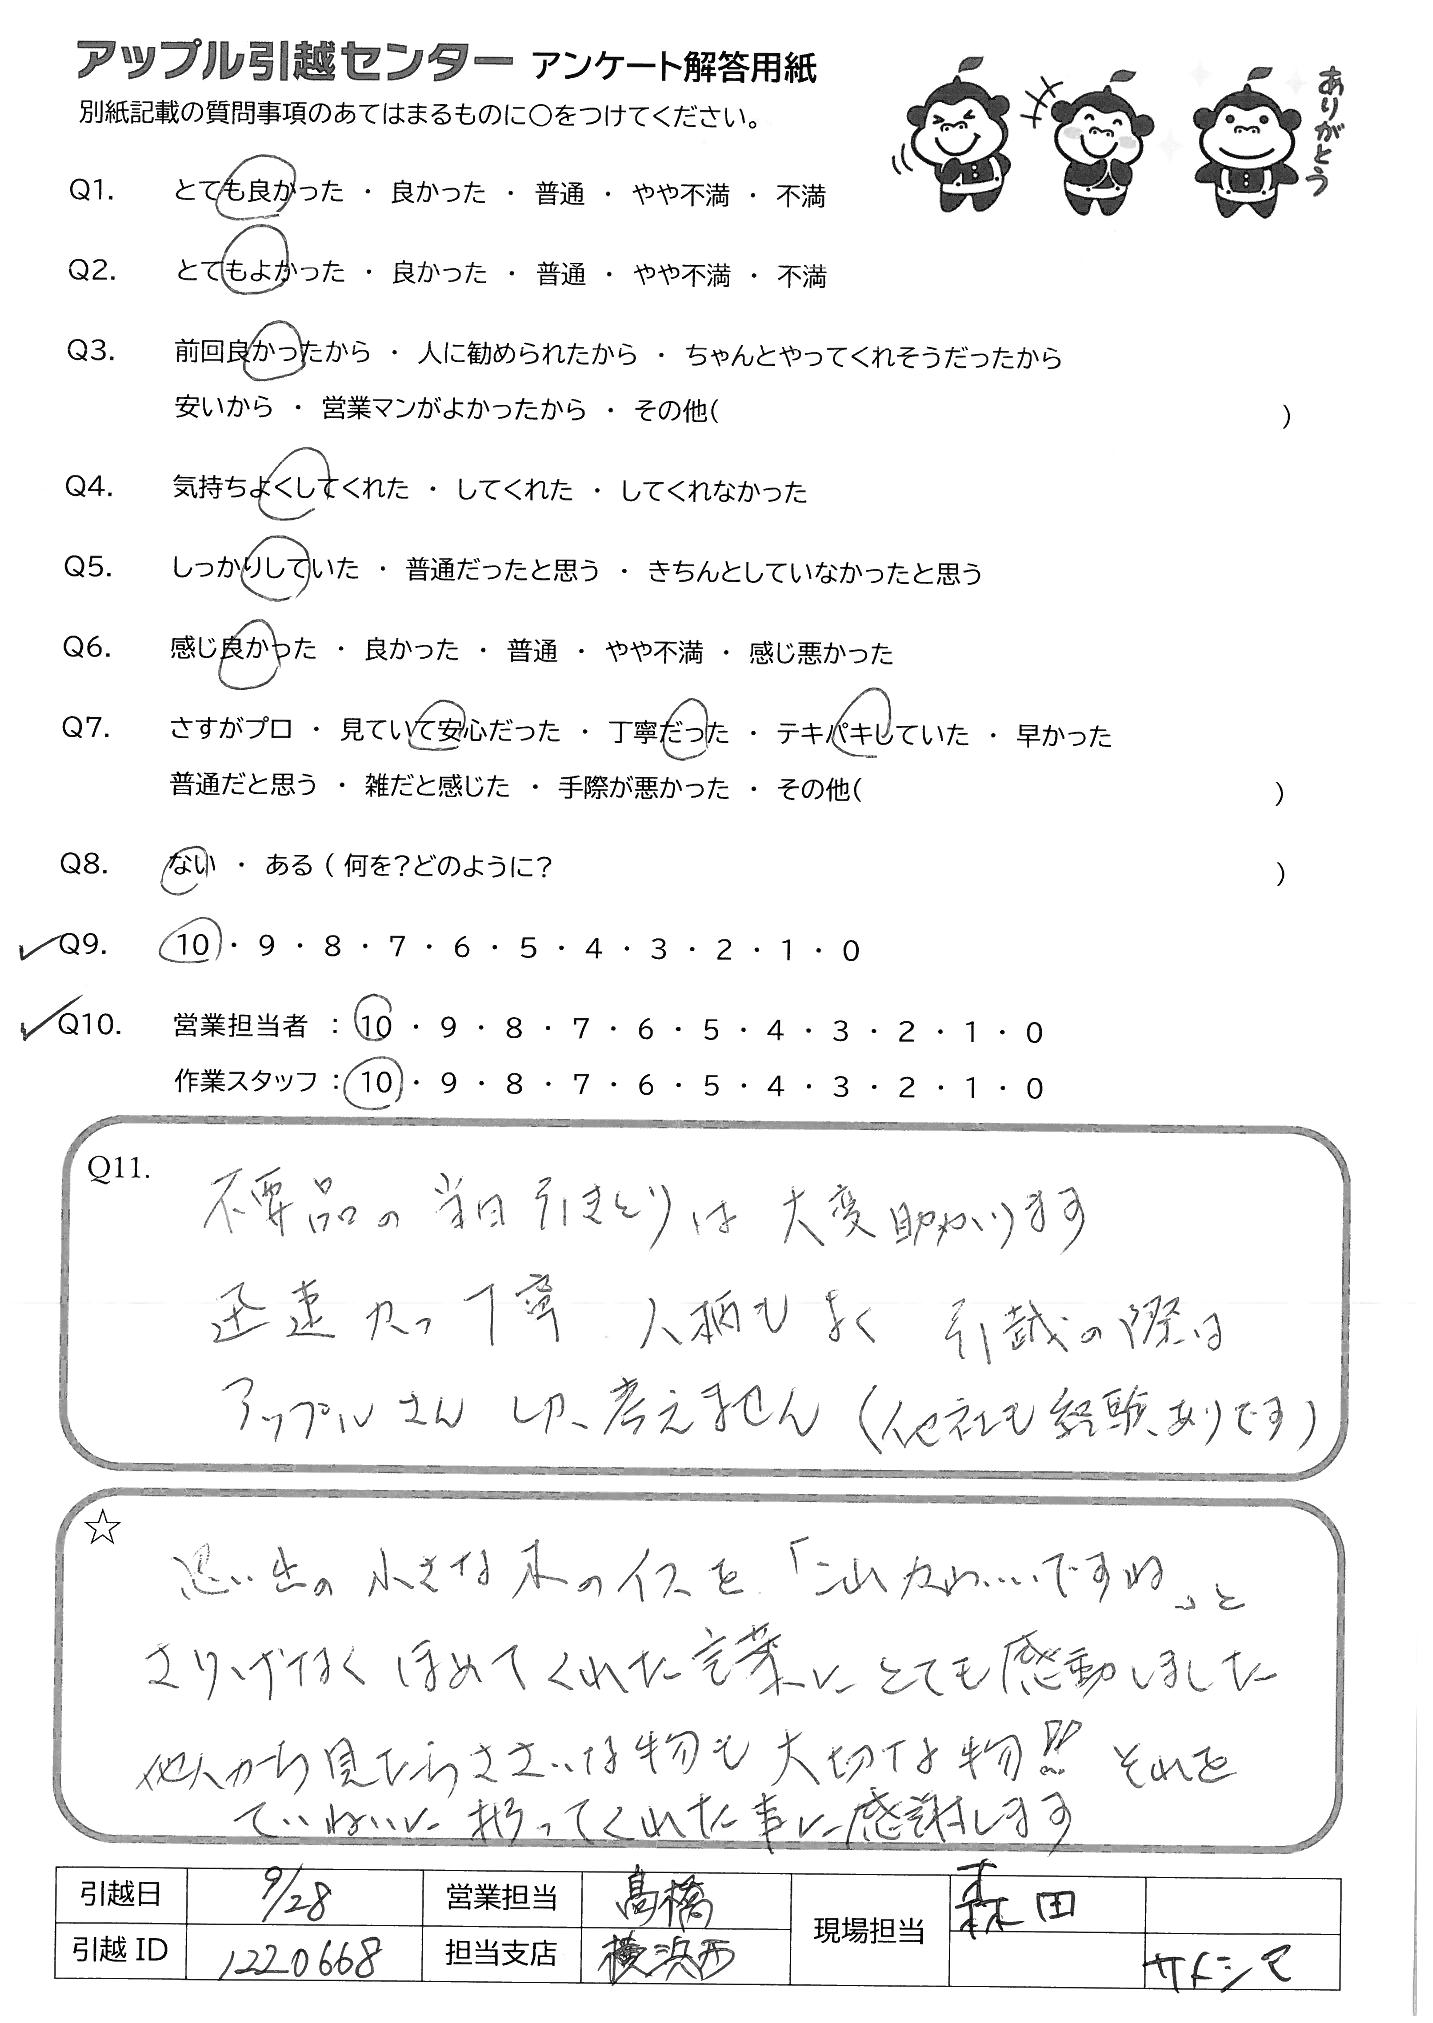 アップル引越センター アンケート解答用紙
別紙記載の質問事項のあてはまるものに〇をつけてください。
ありがとう
Q1. とても良かった ・ 良かった ・ 普通 ・ やや不満 ・ 不満
Q2. とてもよかった ・ 良かった ・ 普通 ・ やや不満 ・ 不満
Q3. 前回良かったから ・ 人に勧められたから ・ ちゃんとやってくれそうだったから
安いから ・ 営業マンがよかったから ・ その他( )
Q4. 気持ちよくしてくれた ・ してくれた ・ してくれなかった
Q5. しっかりしていた ・ 普通だったと思う ・ きちんとしていなかったと思う
Q6. 感じ良かった ・ 良かった ・ 普通 ・ やや不満 ・ 感じ悪かった
Q7. さすがプロ ・ 見ていて安心だった ・ 丁寧だった ・ テキパキしていた ・ 早かった
普通だと思う ・ 雑だと感じた ・ 手際が悪かった ・ その他( )
Q8. ない ・ ある ( 何を?どのように? )
Q9. 10 ・ 9 ・ 8 ・ 7 ・ 6 ・ 5 ・ 4 ・ 3 ・ 2 ・ 1 ・ 0
Q10. 営業担当者 : 10 ・ 9 ・ 8 ・ 7 ・ 6 ・ 5 ・ 4 ・ 3 ・ 2 ・ 1 ・ 0
作業スタッフ : 10 ・ 9 ・ 8 ・ 7 ・ 6 ・ 5 ・ 4 ・ 3 ・ 2 ・ 1 ・ 0
Q11.
不要品の当日引きとりは大変助かります
迅速かつ丁寧 人柄もよく 引越の際は
アップルさんしか考えません (他社も経験ありです)
☆
思い出の小さな木のイスを「これかわいいですね」と
さりげなくほめてくれた言葉にとても感動しました
他人から見たらささいな物も大切な物!! それを
ていねいに扱ってくれた事に感謝します
引越日 9/28 営業担当 髙橋 現場担当 森田
引越ID 1220668 担当支店 横浜西 サトシマ